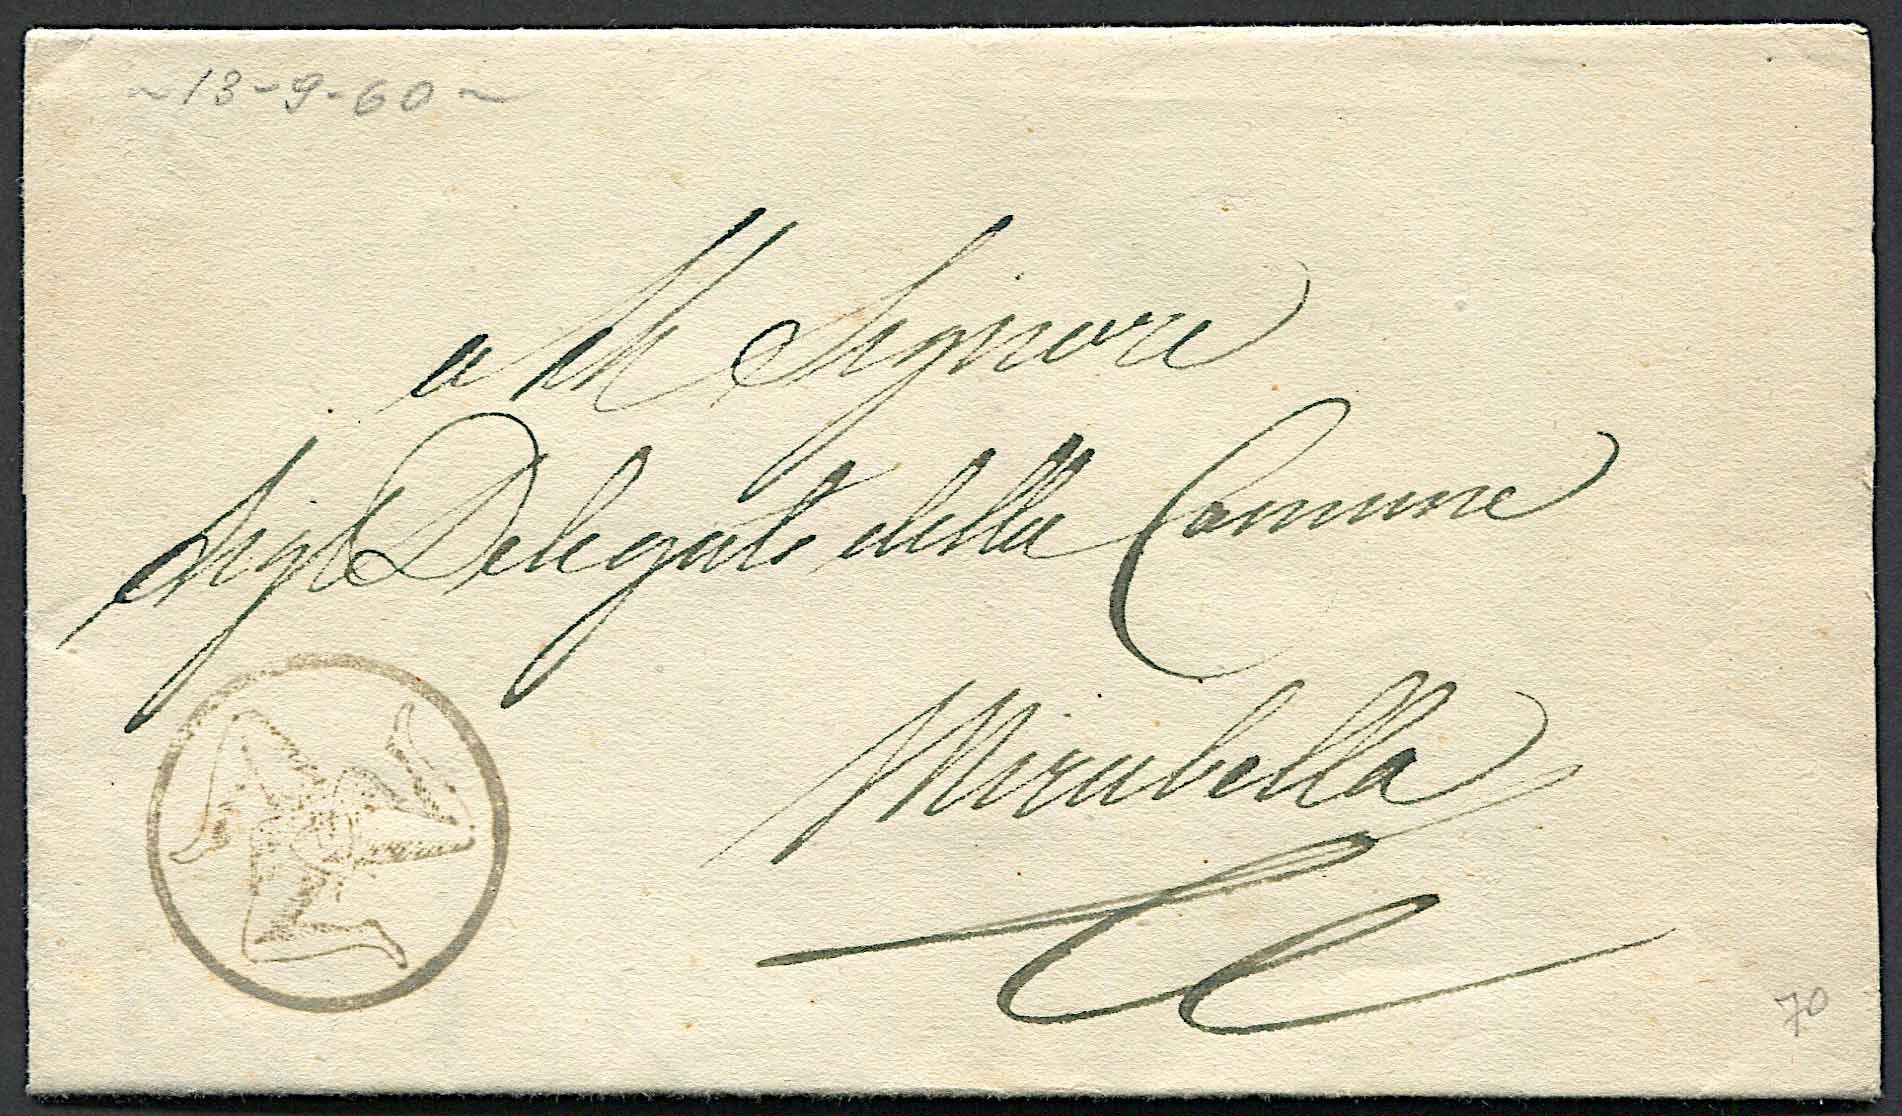 ~ 13-9-60 ~
al Signore
Sigr Delegato della Comune
Mirabella
70